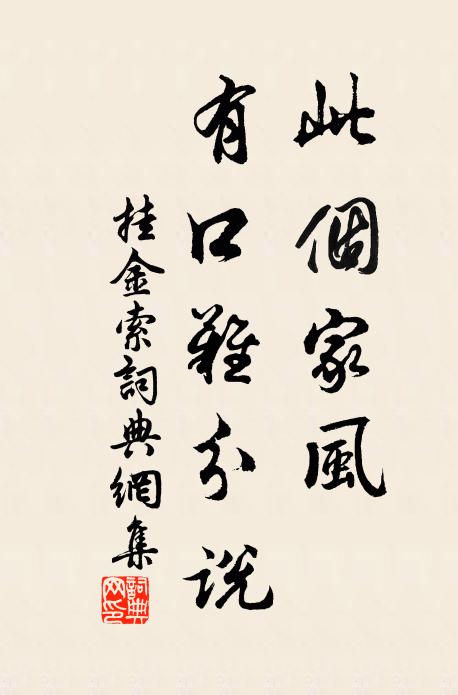 此個家風
有口難分說
挂金索詞典網集
詞典网印